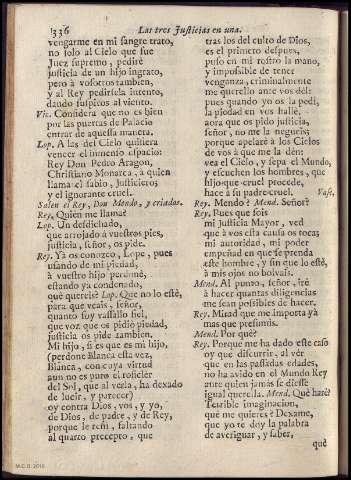 336 Las tres Justicias en una.
vengarme en mi sangre trato,
no solo al Cielo que fue
Juez supremo, pediré
justicia de un hijo ingrato,
pero à vosotros tambien,
y al Rey pedirsela intento,
dando suspiros al viento.
Vic. Considera que no es bien
por las puertas de Palacio
entrar de aquessa manera.
Lop. A las del Cielo quisiera
vencer el inmenso espacio:
Rey Don Pedro Aragon,
Christiano Monarca, à quien
llama el sabio, Justiciero,
y el ignorante cruel.
Salen el Rey, Don Mendo, y criados.
Rey. Quien me llama?
Lop. Un desdichado,
que arrojado à vuestros pies,
justicia, señor, os pide.
Rey. Yà os conozco, Lope, pues
usando de mi piedad,
à vuestro hijo perdonè,
estando ya condenado,
què quereis? Lop. Que no lo estè,
para que veais, señor,
quanto soy vassallo fiel,
que voz que os pidiò piedad,
justicia os pide tambien.
Mi hijo, si es que es mi hijo,
(perdone Blanca esta vez,
Blanca, con cuya virtud
aun no es puro el rosicler
del Sol, que al verla, ha dexado
de lucir, y parecer)
oy contra Dios, vos, y yo,
de Dios, de padre, y de Rey,
porque le reñi, faltando
al quarto precepto, que
tras los del culto de Dios,
es el primero despues,
puso en mi rostro la mano,
y impossible de tener
venganza, criminalmente
me querello ante vos dèl:
pues quando yo os la pedi,
la piedad en vos hallè,
aora que os pido justicia,
señor, no me la negueis;
porque apelarè à los Cielos
de vos à que me la dèn:
vea el Cielo, y sepa el Mundo,
y escuchen los hombres, que
hijo que cruel procede,
hace à su padre cruel. Vase.
Rey. Mendo? Mend. Señor?
Rey. Pues que sois
mi Justicia Mayor, ved
que à vos esta causa os toca;
mi autoridad, mi poder
empeñad en que se prenda
este hombre, y sin que lo estè,
à mis ojos no bolvais.
Mend. Al punto, señor, irè
à hacer quantas diligencias
me sean possibles de hacer.
Rey. Mirad que me importa yà
mas que presumís.
Mend. Por què?
Rey. Porque me ha dado este caso
oy que discurrir, al vèr
que en las passadas edades,
no ha avido en el Mundo Rey
ante quien jamás se diesse
igual querella. Mend. Què harè?
Terrible imaginacion,
què me quieres? Dexame,
que yo te doy la palabra
de averiguar, y saber,
què
M.C.D. 2018